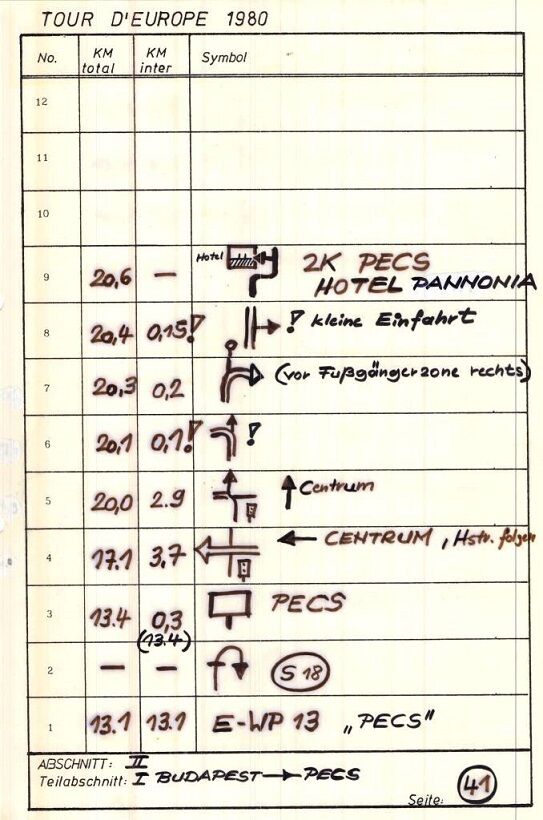 TOUR D'EUROPE 1980
No. KM total KM inter Symbol
12
11
10
9 20,6 — Hotel 2K PECS
HOTEL PANNONIA
8 20,4 0,15! ! kleine Einfahrt
7 20,3 0,2 (vor Fußgängerzone rechts)
6 20,1 0,1! !
5 20,0 2.9 Centrum
4 17.1 3,7 CENTRUM, Hstr. folgen
3 13.4 0,3 PECS
(13.4)
2 — — S 18
1 13.1 13.1 E-WP 13 „PECS"
ABSCHNITT: II
Teilabschnitt: I BUDAPEST → PECS
Seite: 41